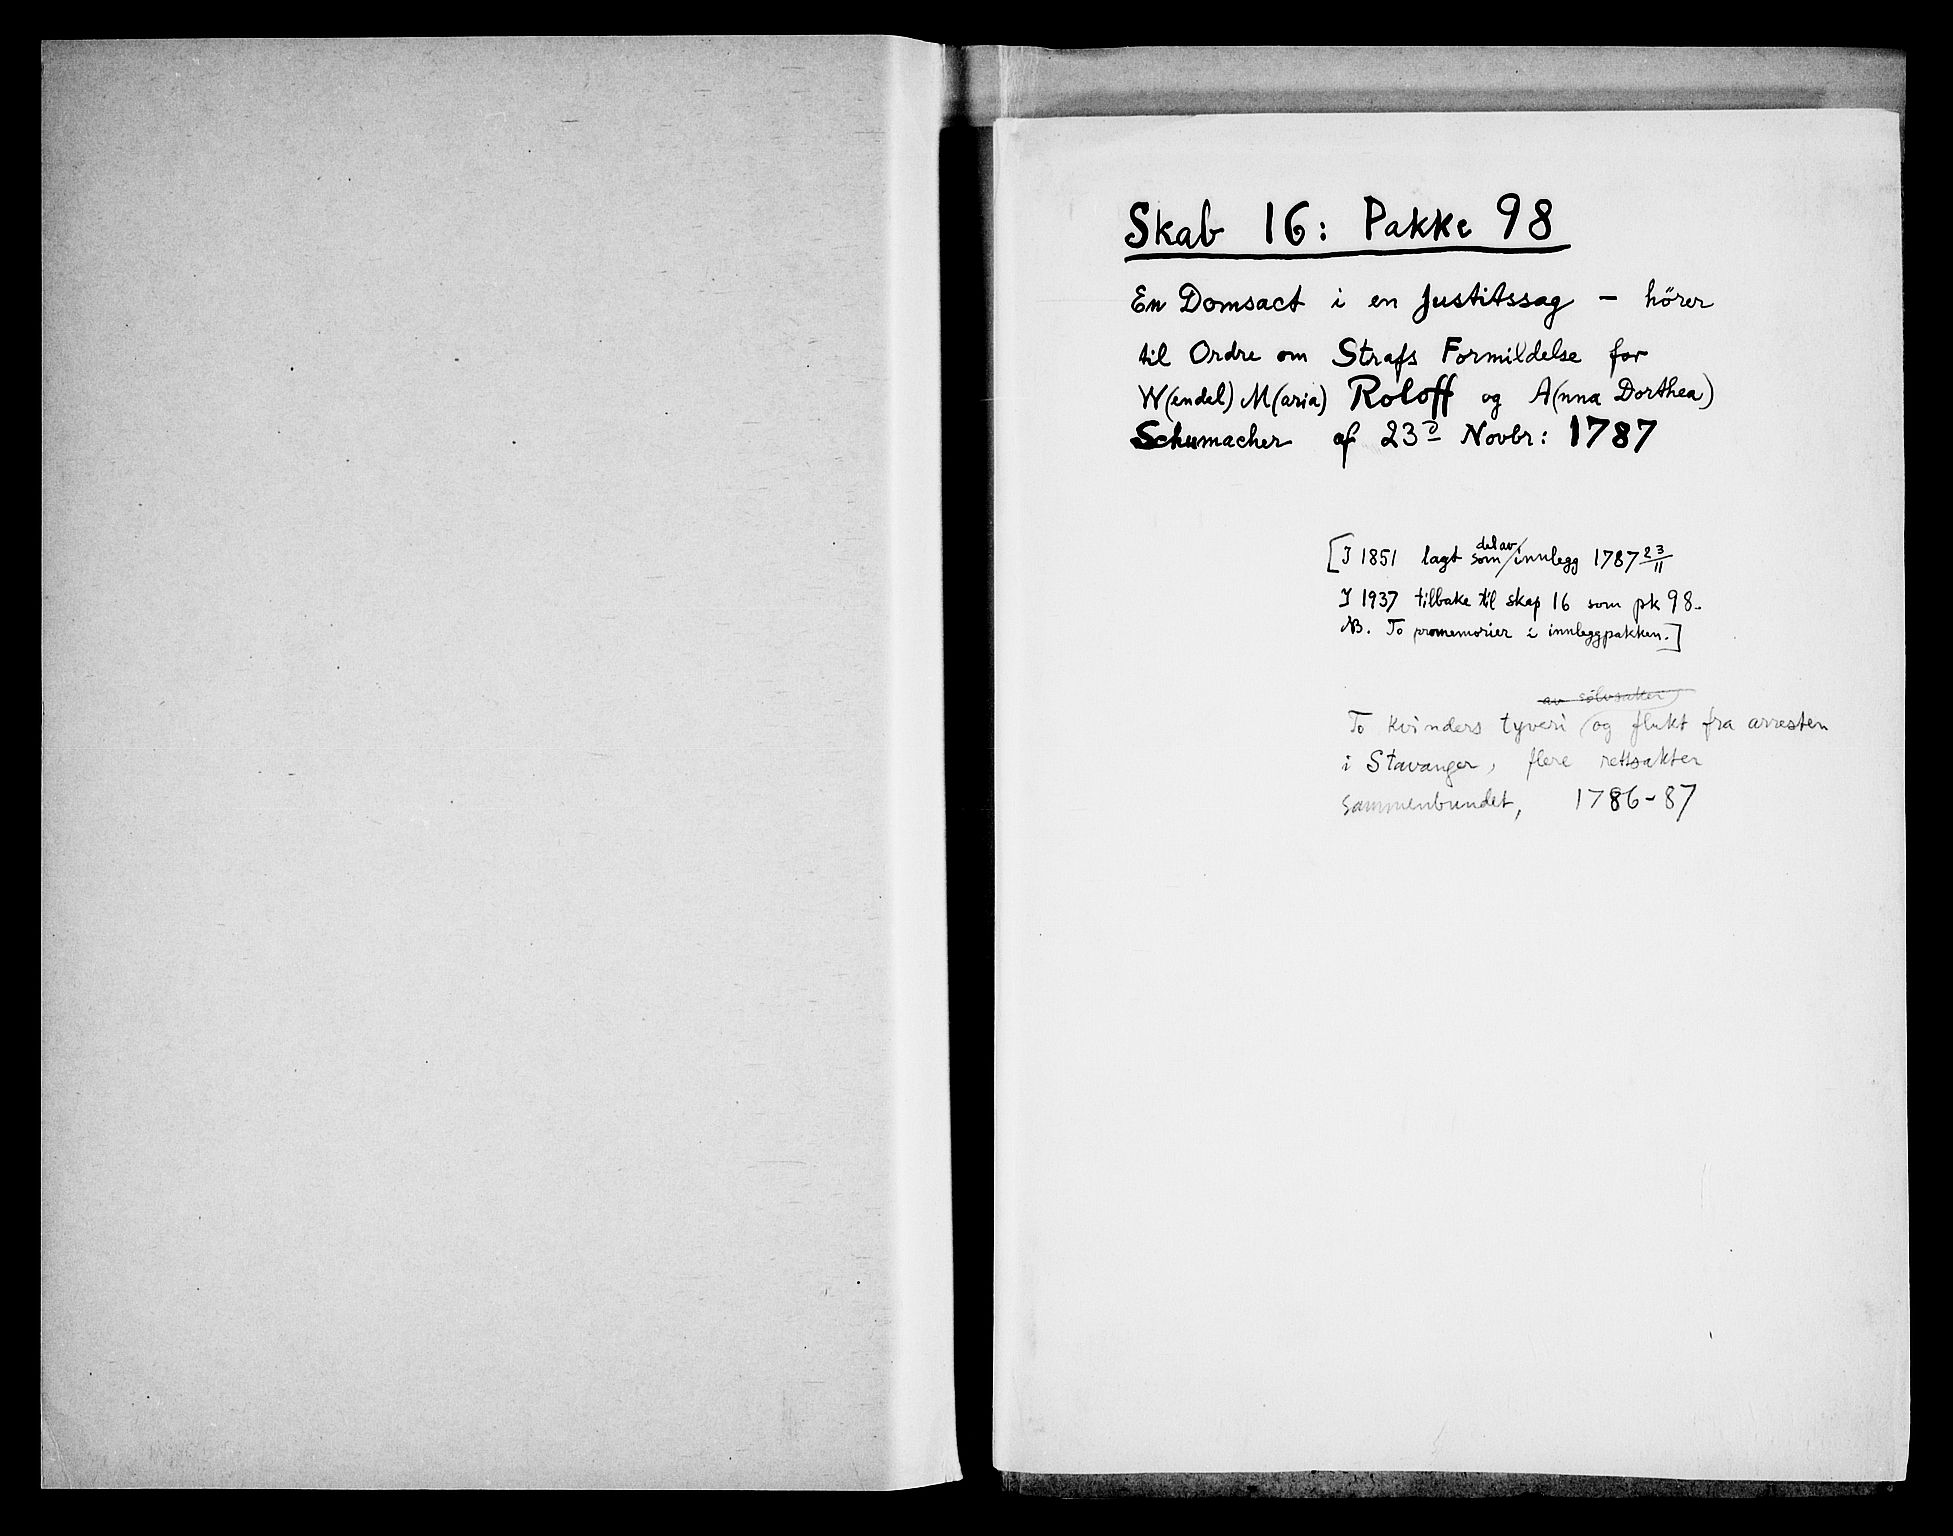 Skab 16: Pakke 98
En Domsact i en Justitssag – hörer
til Ordre om Strafs Formildelse for
W(endel) M(aria) Roloff og A(nna Dorthea)
Schumacher af 23d Novbr: 1787
[I 1851 lagt som del av innlegg 1787 23/11
I 1937 tilbake til skap 16 som pk 98.
NB. To promemorier i innleggpakken.]
av sølvsaker
To kvinders tyveri og flukt fra arresten
i Stavanger, flere rettsakter
sammenbundet, 1786-87